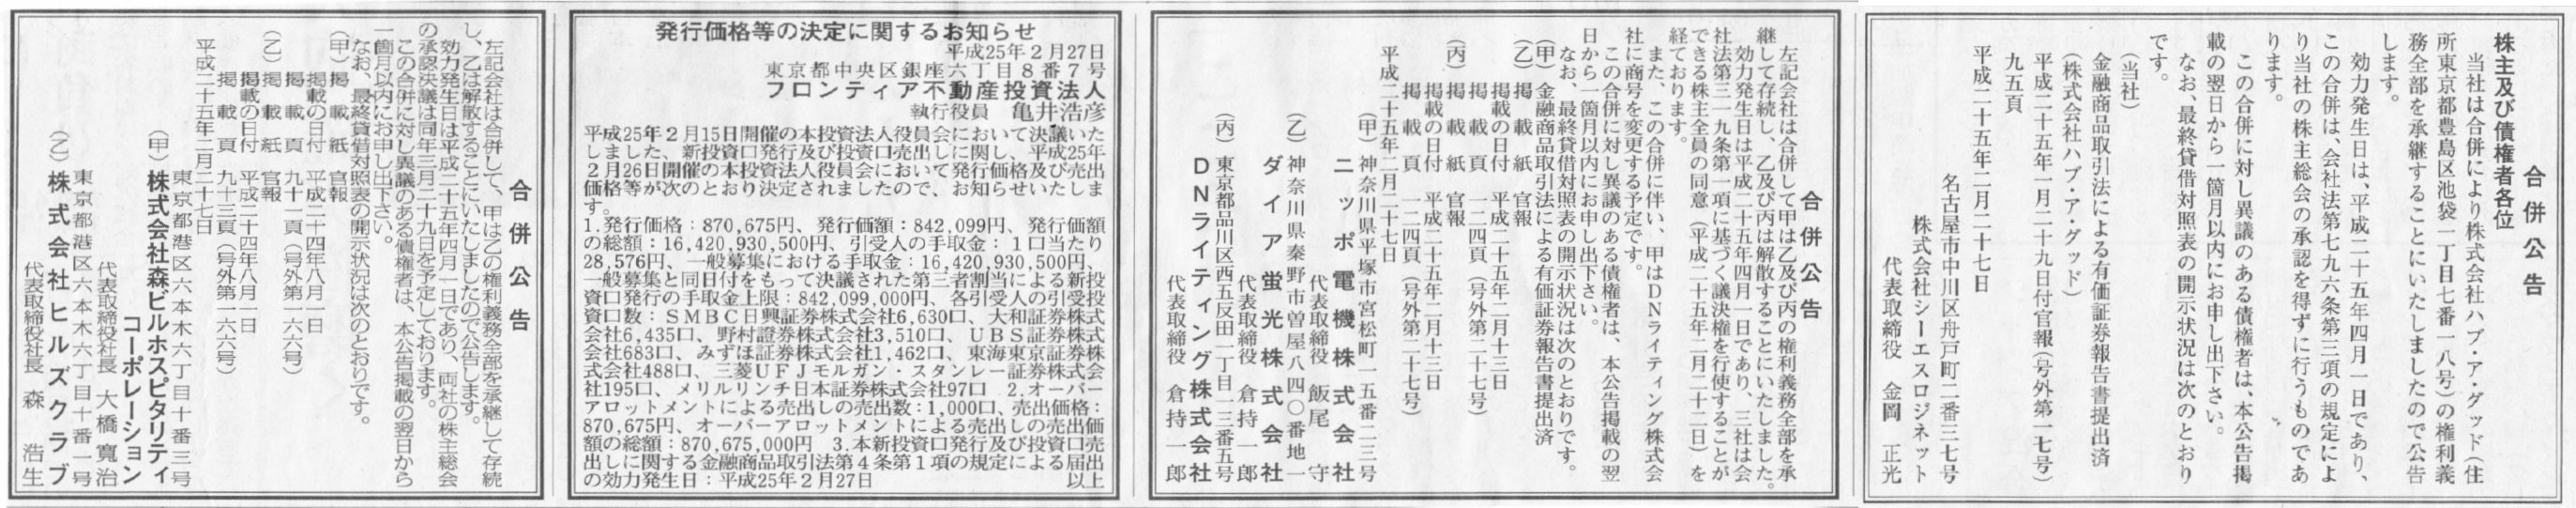 合併公告
株主及び債権者各位
当社は合併により株式会社ハブ・ア・グッド（住
所東京都豊島区池袋一丁目七番一八号）の権利義
務全部を承継することにいたしましたので公告
します。
効力発生日は、平成二十五年四月一日であり、
この合併は、会社法第七九六条第三項の規定によ
り当社の株主総会の承認を得ずに行うものであ
ります。
この合併に対し異議のある債権者は、本公告掲
載の翌日から一箇月以内にお申し出下さい。
なお、最終貸借対照表の開示状況は次のとおり
です。
（当社）
金融商品取引法による有価証券報告書提出済
（株式会社ハブ・ア・グッド）
平成二十五年一月二十九日付官報（号外第一七号）
九五頁
平成二十五年二月二十七日
名古屋市中川区舟戸町二番三七号
株式会社シーエスロジネット
代表取締役　金岡　正光
合併公告
左記会社は合併して甲は乙及び丙の権利義務全部を承
継して存続し、乙及び丙は解散することにいたしました。
効力発生日は平成二十五年四月一日であり、三社は会
社法第三一九条第一項に基づく議決権を行使することが
できる株主全員の同意（平成二十五年二月二十二日）を
経ております。
また、この合併に伴い、甲はDNライティング株式会
社に商号を変更する予定です。
この合併に対し異議のある債権者は、本公告掲載の翌
日から一箇月以内にお申し出下さい。
なお、最終貸借対照表の開示状況は次のとおりです。
（甲）金融商品取引法による有価証券報告書提出済
（乙）掲載紙　官報
掲載の日付　平成二十五年二月十三日
掲載頁　一二四頁（号外第二十七号）
（丙）掲載紙　官報
掲載の日付　平成二十五年二月十三日
掲載頁　一二四頁（号外第二十七号）
平成二十五年二月二十七日
（甲）神奈川県平塚市宮松町一五番二三号
ニッポ電機株式会社
代表取締役　飯尾　守
（乙）神奈川県秦野市曽屋八四〇番地一
ダイア蛍光株式会社
代表取締役　倉持一郎
（丙）東京都品川区西五反田一丁目一三番五号
DNライティング株式会社
代表取締役　倉持一郎
発行価格等の決定に関するお知らせ
平成25年２月27日
東京都中央区銀座六丁目８番７号
フロンティア不動産投資法人
執行役員　亀井浩彦
平成25年２月15日開催の本投資法人役員会において決議いた
しました、新投資口発行及び投資口売出しに関し、平成25年
２月26日開催の本投資法人役員会において、発行価格及び売出
価格等が次のとおり決定されましたので、お知らせいたしま
す。
1.発行価格：870,675円、発行価額：842,099円、発行価額
の総額：16,420,930,500円、引受人の手取金：１口当たり
28,576円、一般募集における手取金：16,420,930,500円、
一般募集と同日付をもって決議された第三者割当による新投
資口発行の手取金上限：842,099,000円、各引受人の引受投
資口数：ＳＭＢＣ日興証券株式会社6,630口、大和証券株式
会社6,435口、野村證券株式会社3,510口、ＵＢＳ証券株式
会社683口、みずほ証券株式会社1,462口、東海東京証券株
式会社488口、三菱ＵＦＪモルガン・スタンレー証券株式会
社195口、メリルリンチ日本証券株式会社97口　2.オーバー
アロットメントによる売出しの売出数：1,000口、売出価格：
870,675円、オーバーアロットメントによる売出しの売出価
額の総額：870,675,000円　3.本新投資口発行及び投資口売
出しに関する金融商品取引法第４条第１項の規定による届出
の効力発生日：平成25年２月27日　以上
合併公告
左記会社は合併して、甲は乙の権利義務全部を承継して存続
し、乙は解散することにいたしましたので公告します。
効力発生日は平成二十五年四月一日であり、両社の株主総会
の承認決議は同年三月二十九日を予定しております。
この合併に対し異議のある債権者は、本公告掲載の翌日から
一箇月以内にお申し出下さい。
なお、最終貸借対照表の開示状況は次のとおりです。
（甲）掲載紙　官報
掲載の日付　平成二十四年八月一日
掲載頁　九十一頁（号外第一六六号）
（乙）掲載紙　官報
掲載の日付　平成二十四年八月一日
掲載頁　九十三頁（号外第一六六号）
平成二十五年二月二十七日
東京都港区六本木六丁目十番三号
（甲）株式会社森ビルホスピタリティ
コーポレーション
代表取締役社長　大橋寛治
東京都港区六本木六丁目十番一号
（乙）株式会社ヒルズクラブ
代表取締役社長　森　浩生